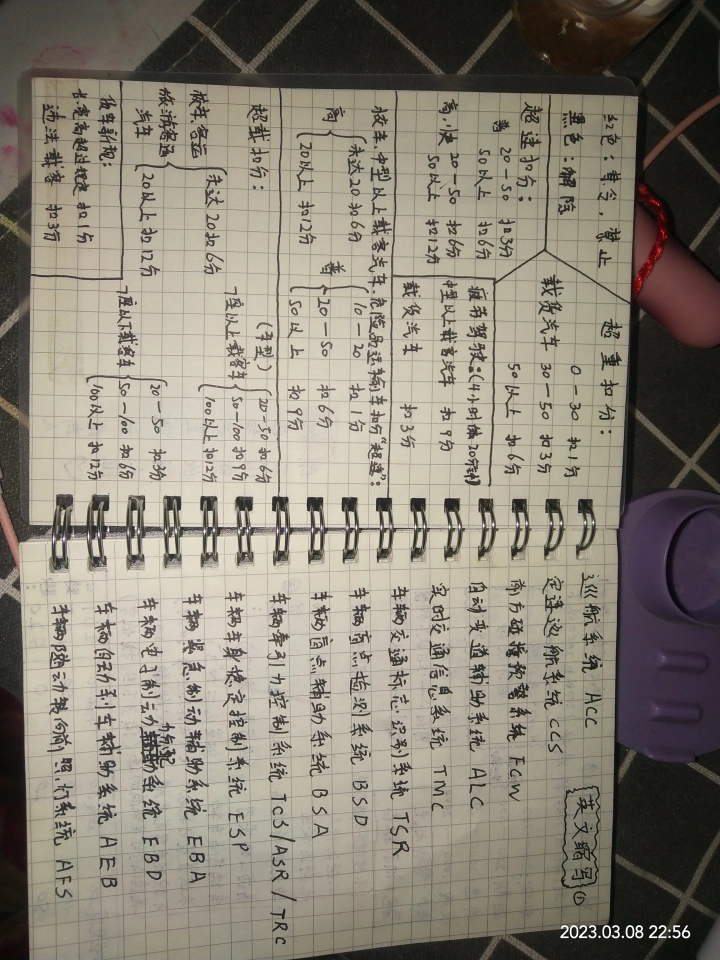 红色:禁令,禁止
黑色:解除
超速扣分:
普 20-50 扣3分
50以上 扣6分
高、快 20-50 扣6分
50以上 扣12分
超重扣分:
0-30 扣1分
载货汽车 30-50 扣3分
50以上 扣6分
疲劳驾驶:(4小时休20分钟)
中型以上载客汽车 扣9分
载货汽车 扣3分
校车、中型以上载客汽车、危险品运输车扣分"超速":
高 未达20扣6分
20以上 扣12分
普 10-20 扣1分
20-50 扣6分
50以上 扣9分
超载扣分:
校车、客运
旅游客运
汽车
未达20扣6分
20以上扣12分
(中型)
7座以上载客车
20-50扣6分
50-100扣9分
100以上扣12分
7座以下载客车
20-50 扣3分
50-100 扣6分
100以上 扣12分
货车新规:
长宽高超过规定 扣1分
违法载客 扣3分
英文缩写①
巡航系统 ACC
定速边航系统 CCS
前方碰撞预警系统 FCW
自动变道辅助系统 ALC
实时交通信息系统 TMC
车辆交通标志识别系统 TSR
车辆盲点监测系统 BSD
车辆盲点辅助系统 BSA
车辆牵引力控制系统 TCS/ASR/TRC
车辆车身稳定控制系统 ESP
车辆紧急制动辅助系统 EBA
车辆电子制动力分配系统 EBD
车辆自动刹车辅助系统 AEB
车辆随动转向前照灯系统 AFS
2023.03.08 22:56